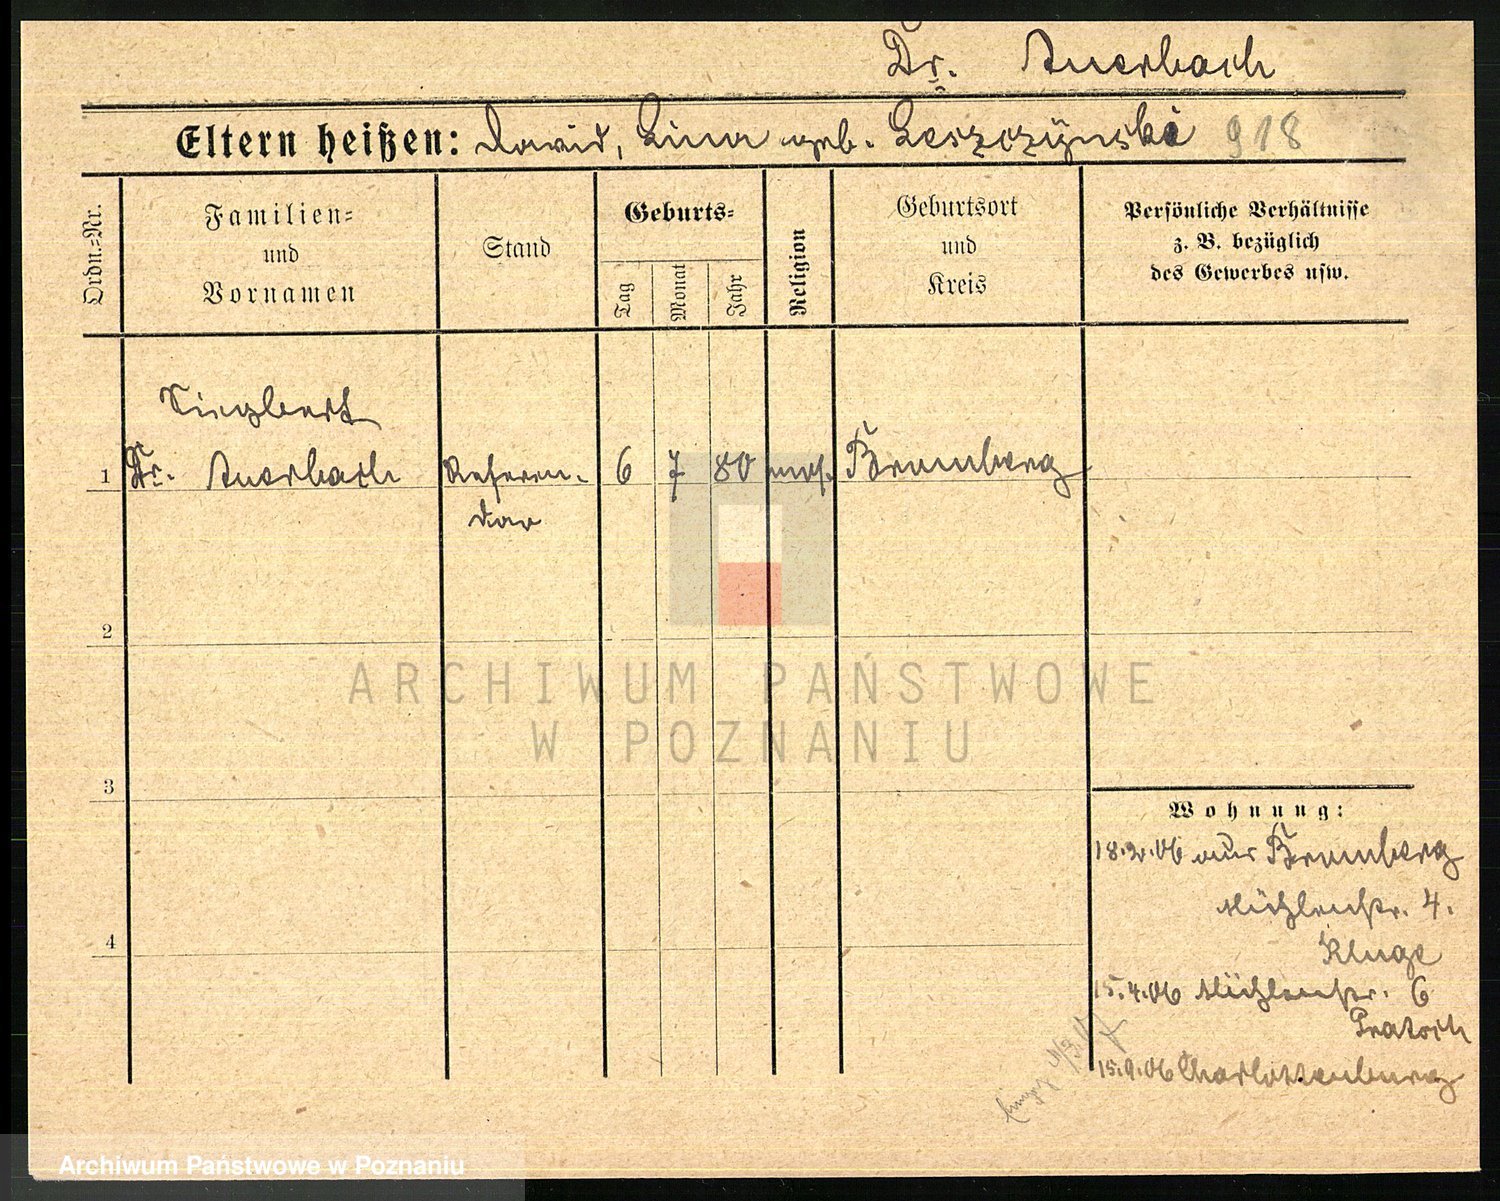 Dr. Auerbach
Eltern heißen: David, Lina geb. Leszczynski 918
Ordn.-Nr.
Familien- und Vornamen
Stand
Geburts-
Tag
Monat
Jahr
Religion
Geburtsort und Kreis
Persönliche Verhältnisse
z. B. bezüglich
des Gewerbes usw.
Siegbert
1 Dr. Auerbach Referen- 6 7 80 mos. Bromberg
dar
2
3
4
Wohnung:
18.2.06 aus Bromberg
Mühlenstr. 4.
Kluge
15.4.06 Mühlenstr. 6
15.9.06 Charlottenburg
ARCHIWUM PAŃSTWOWE
W POZNANIU
Archiwum Państwowe w Poznaniu